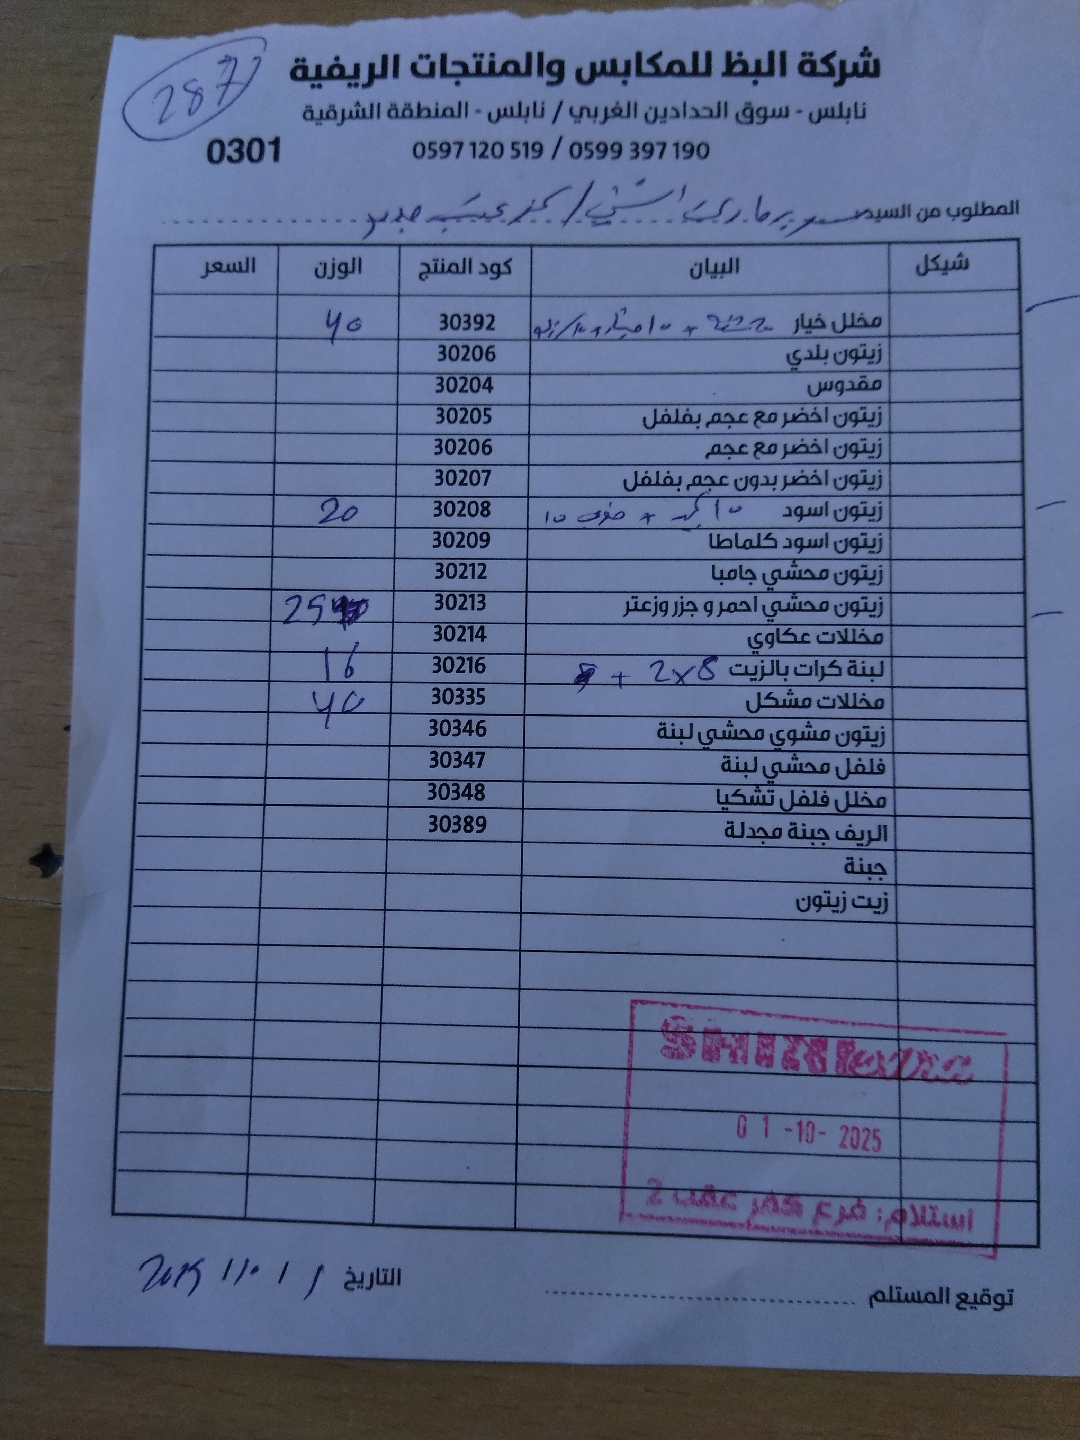 287
شركة البظ للمكابس والمنتجات الريفية
نابلس - سوق الحدادين الغربي / نابلس - المنطقة الشرقية
0301 0597 120 519 / 0599 397 190
المطلوب من السيد
شيكل البيان كود المنتج الوزن السعر
مخلل خيار 30392 40
زيتون بلدي 30206
مقدوس 30204
زيتون اخضر مع عجم بفلفل 30205
زيتون اخضر مع عجم 30206
زيتون اخضر بدون عجم بفلفل 30207
زيتون اسود 30208 20
زيتون اسود كلماطا 30209
زيتون محشي جامبا 30212
زيتون محشي احمر و جزر وزعتر 30213 25
مخللات عكاوي 30214
لبنة كرات بالزيت 2x8 + 30216 16
مخللات مشكل 30335 40
زيتون مشوي محشي لبنة 30346
فلفل محشي لبنة 30347
مخلل فلفل تشكيا 30348
الريف جبنة مجدلة 30389
جبنة
زيت زيتون
SHINI
01-10-2025
استلام: فرع كفر عقب 2
توقيع المستلم
التاريخ